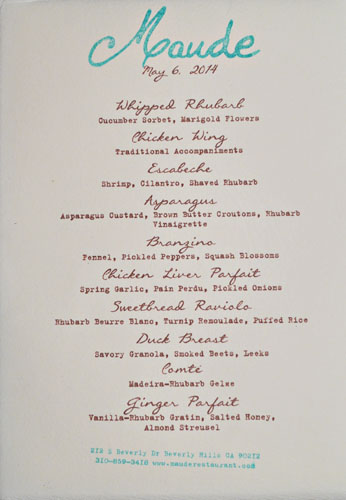 Maude
May 6, 2014
Whipped Rhubarb
Cucumber Sorbet, Marigold Flowers
Chicken Wing
Traditional Accompaniments
Escabeche
Shrimp, Cilantro, Shaved Rhubarb
Asparagus
Asparagus Custard, Brown Butter Croutons, Rhubarb
Vinaigrette
Branzino
Fennel, Pickled Peppers, Squash Blossoms
Chicken Liver Parfait
Spring Garlic, Pain Perdu, Pickled Onions
Sweetbread Raviolo
Rhubarb Beurre Blanc, Turnip Remoulade, Puffed Rice
Duck Breast
Savory Granola, Smoked Beets, Leeks
Comté
Madeira-Rhubarb Gelee
Ginger Parfait
Vanilla-Rhubarb Gratin, Salted Honey,
Almond Streusel
212 S Beverly Dr Beverly Hills CA 90212
310-859-3418 www.mauderestaurant.com